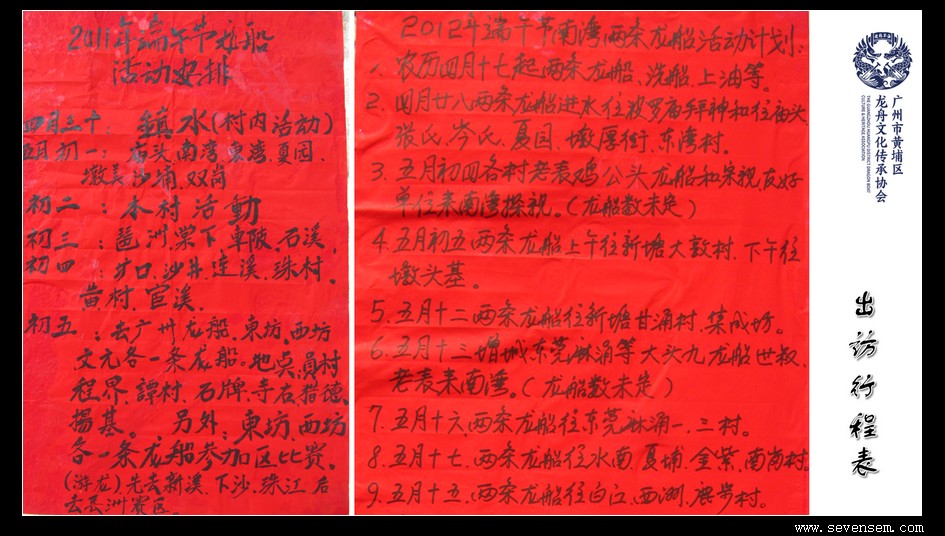 2011年端午节龙船
活动安排
四月三十：鎮水(村内活动)
五月初一：庙头.南湾.東湾.夏园.
墩美.沙埔.双岗
初二：本村活動
初三：琶洲.棠下.車陂.石溪.
初四：圹口.沙井.連溪.珠村.
黄村.官溪.
初五：去广州龙船.東坊.西坊
文元各一条龙船。地点:員村
程界.譚村.石牌.寺右.猎德.
揚基。另外:東坊.西坊
各一条龙船参加区比赛。
(游龙)先去新溪.下沙.珠江.后
去長洲赛区。
2012年端午节南湾两条龙船活动计划:
1、农历四月十七起两条龙船、洗船、上油等。
2、四月廿八两条龙船进水往波罗庙拜神和往庙头
张氏、岑氏、夏园、墩厚街、东湾村。
3、五月初四各村老表鸡公头龙船和宗亲友好
单位来南湾探视。(龙船数未定)
4、五月初五两条龙船上午往新塘大敦村.下午往
墩头基。
5、五月十二两条龙船往新塘甘涌村、集成坊。
6、五月十三增城东莞麻涌等大头九龙船世叔
老表来南湾。(龙船数未定)
7、五月十六两条龙船往东莞麻涌一、三村。
8、五月十七、两条龙船往水南、夏埔、金紫、南岗村。
9、五月十五、两条龙船往白江、西洲、鹿步村。
广州市黄埔区
龙舟文化传承协会
THE GUANGZHOU HUANGPU DISTRICT DRAGON BOAT
CULTURE & HERITAGE ASSOCIATION
出访行程表
www.sevensem.com